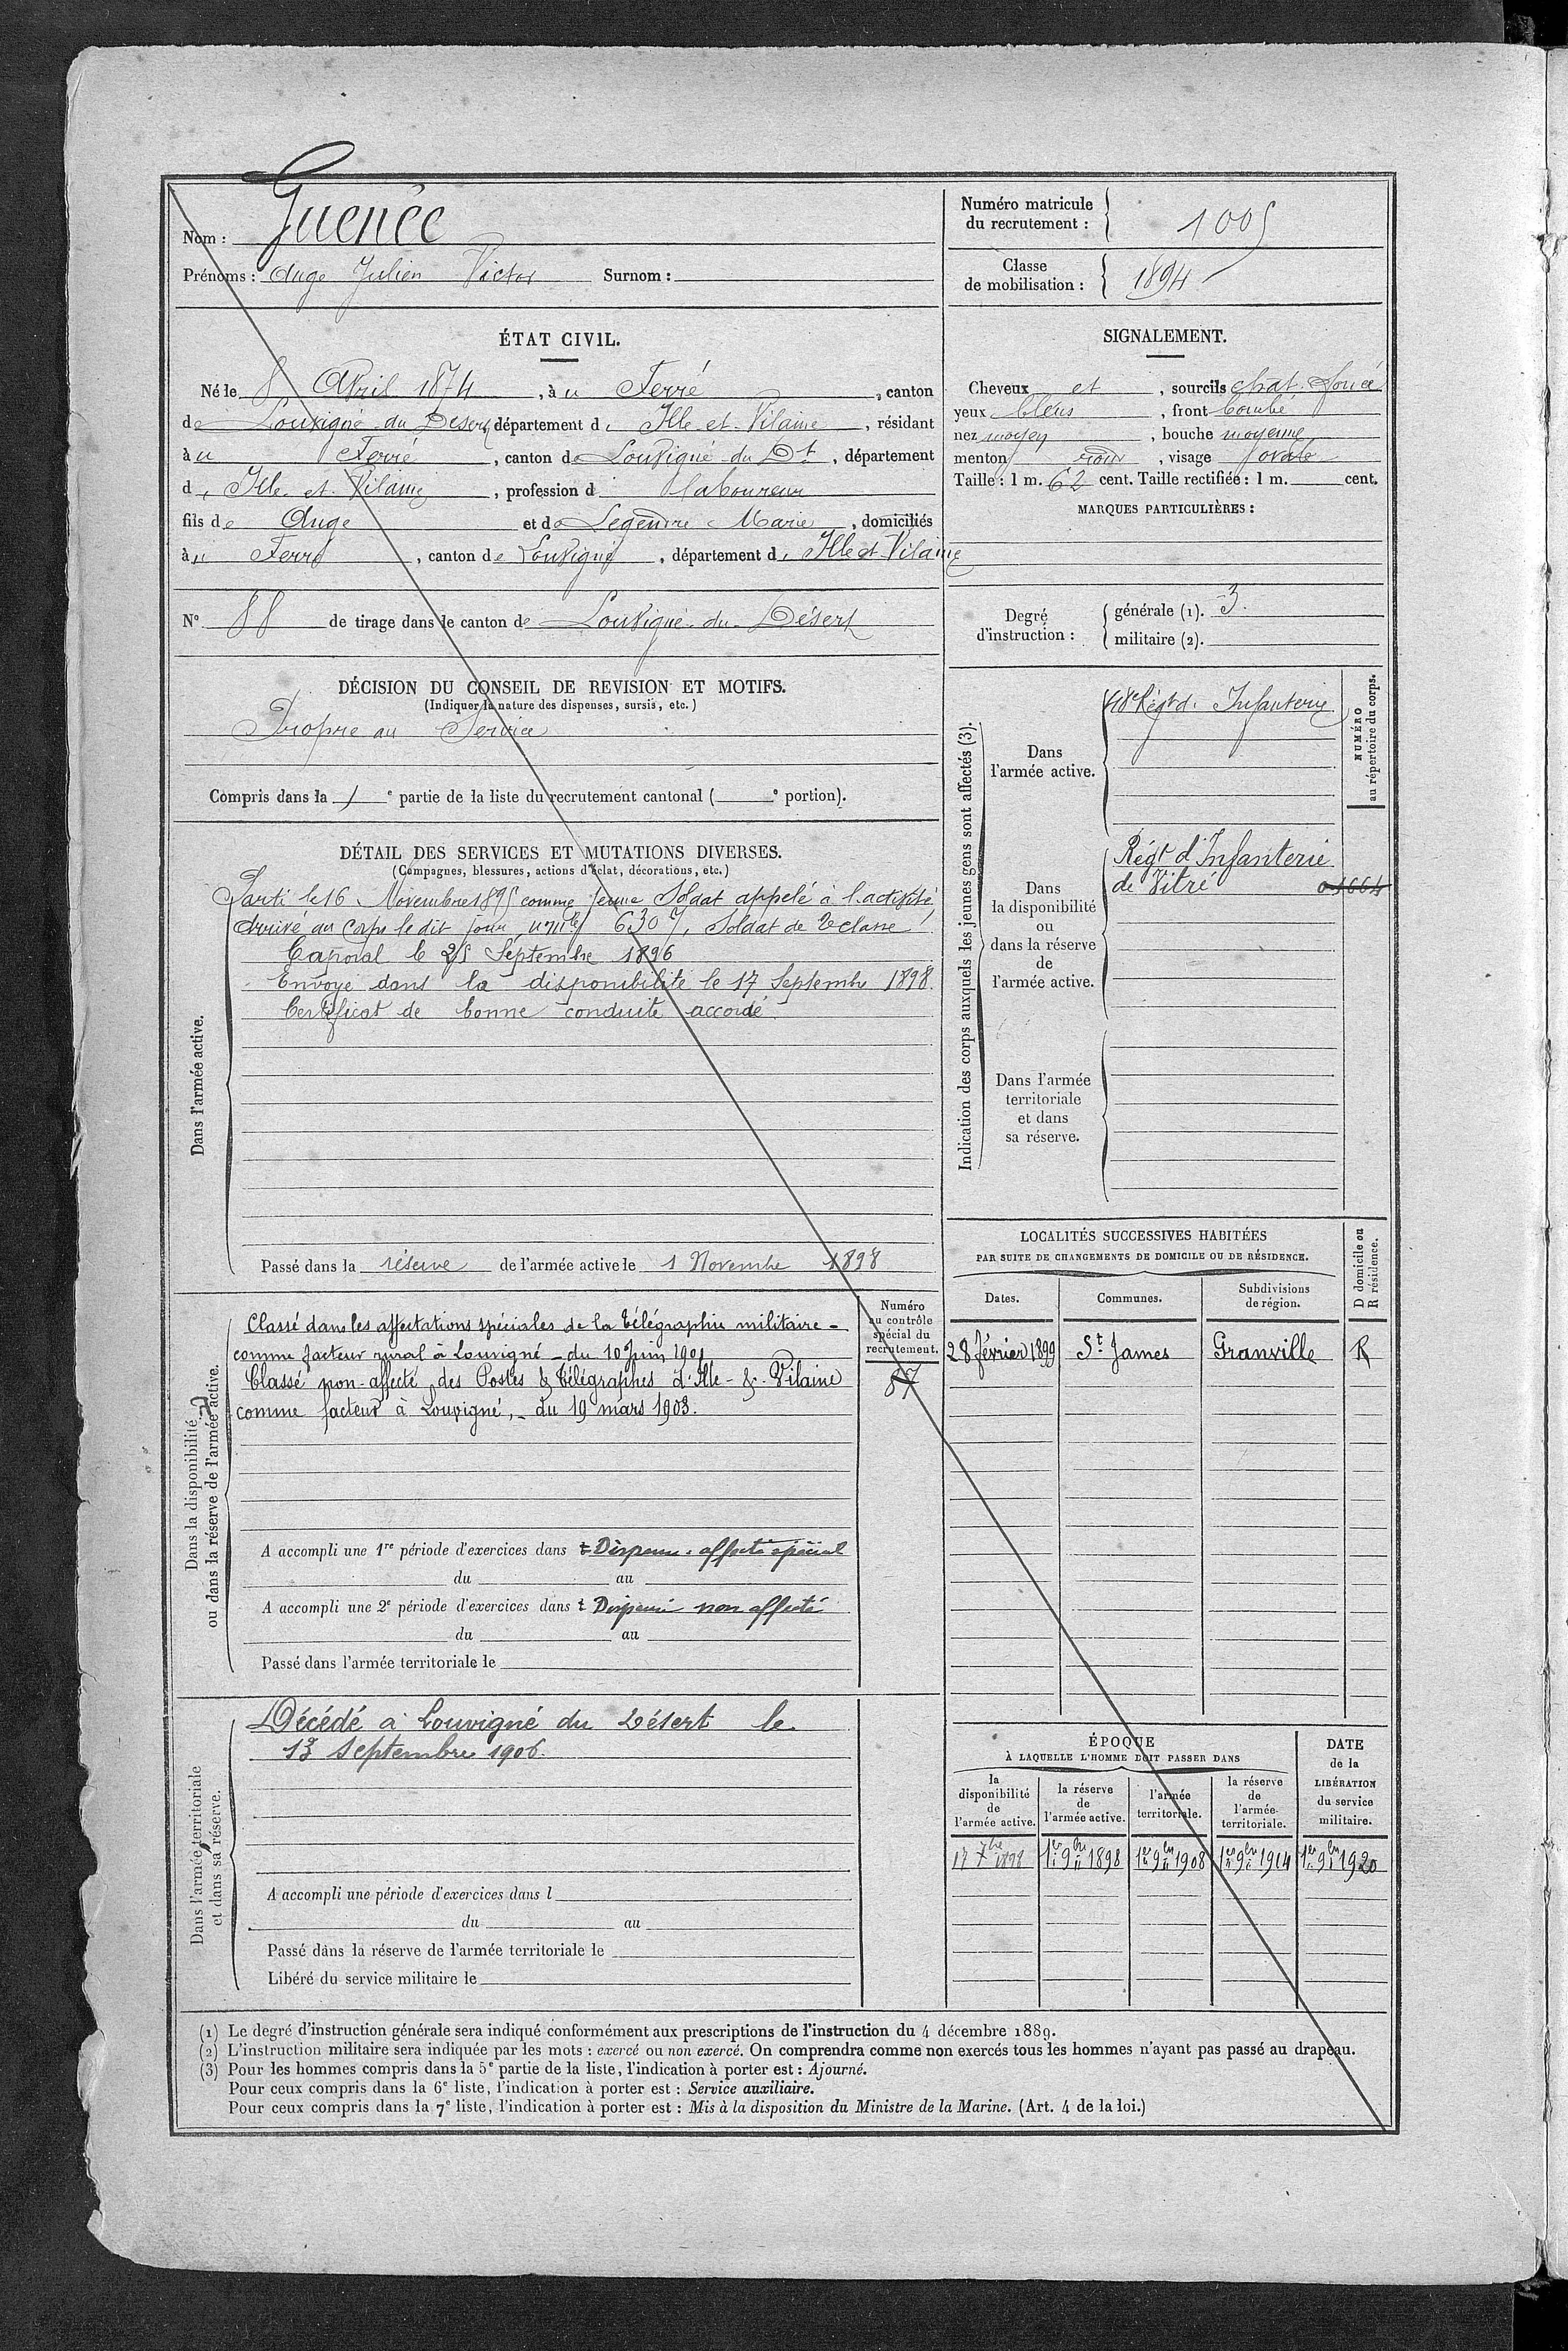 Nom : Guenée
Prénoms : Ange Julien Victor Surnom :
Numéro matricule du recrutement : 1005
Classe de mobilisation : 1894
ÉTAT CIVIL.
Né le 8 Avril 1874, à u Ferré, canton
de Louvigné du Désert, département d' Ille et Vilaine, résidant
à u Ferré, canton de Louvigné du Dt, département
d' Ille et Vilaine, profession d laboureur
fils de Ange et de Legendre Marie, domiciliés
à u Ferré, canton de Louvigné, département d' Ille et Vilaine
N° 88 de tirage dans le canton de Louvigné du Désert
SIGNALEMENT.
Cheveux et, sourcils chat. foncé
yeux bleus, front bombé
nez moyen, bouche moyenne
menton rond, visage ovale
Taille : 1 m. 62 cent. Taille rectifiée : 1 m. cent.
MARQUES PARTICULIÈRES :
Degré d'instruction :
générale (1). 3.
militaire (2).
DÉCISION DU CONSEIL DE REVISION ET MOTIFS.
(Indiquer la nature des dispenses, sursis, etc.)
Propre au Service
Compris dans la 1 e partie de la liste du recrutement cantonal ( e portion).
DÉTAIL DES SERVICES ET MUTATIONS DIVERSES.
(Campagnes, blessures, actions d'éclat, décorations, etc.)
Dans l'armée active.
Parti le 16 Novembre 1895 comme jeune Soldat appelé à l'activité
Arrivé au Corps le dit jour, nº mle 6307, Soldat de 2e classe
Caporal le 25 Septembre 1896
Envoyé dans la disponibilité le 17 Septembre 1898.
Certificat de bonne conduite accordé.
Passé dans la réserve de l'armée active le 1 Novembre 1898
Indication des corps auxquels les jeunes gens sont affectés (3).
NUMÉRO au répertoire du corps.
Dans l'armée active.
48e Régt d' Infanterie
Dans la disponibilité ou dans la réserve de l'armée active.
Régt d'Infanterie
de Vitré 01664
Dans l'armée territoriale et dans sa réserve.
Dans la disponibilité ou dans la réserve de l'armée active.
Numéro au contrôle spécial du recrutement.
Classé dans les affectations spéciales de la télégraphie militaire -
comme facteur rural à Louvigné - du 10 Juin 1901
Classé non-affecté des Postes & Télégraphes d'Ille-&-Vilaine 87
comme facteur à Louvigné, - du 19 mars 1903.
A accompli une 1re période d'exercices dans l Dispensé affecté spécial
du au
A accompli une 2e période d'exercices dans l Dispensé non affecté
du au
Passé dans l'armée territoriale le
LOCALITÉS SUCCESSIVES HABITÉES
PAR SUITE DE CHANGEMENTS DE DOMICILE OU DE RÉSIDENCE.
D domicile ou R résidence.
Dates. Communes. Subdivisions de région.
28 février 1899 St James Granville R
Dans l'armée territoriale et dans sa réserve.
Décédé à Louvigné du Désert le
13 septembre 1906.
A accompli une période d'exercices dans l
du au
Passé dans la réserve de l'armée territoriale le
Libéré du service militaire le
ÉPOQUE
À LAQUELLE L'HOMME DOIT PASSER DANS
DATE de la LIBÉRATION du service militaire.
la disponibilité de l'armée active.
la réserve de l'armée active.
l'armée territoriale.
la réserve de l'armée territoriale.
17 7bre 1898 1er 9bre 1898 1er 9bre 1908 1er 9bre 1914 1er 9bre 1920
(1) Le degré d'instruction générale sera indiqué conformément aux prescriptions de l'instruction du 4 décembre 1889.
(2) L'instruction militaire sera indiquée par les mots : exercé ou non exercé. On comprendra comme non exercés tous les hommes n'ayant pas passé au drapeau.
(3) Pour les hommes compris dans la 5e partie de la liste, l'indication à porter est : Ajourné.
Pour ceux compris dans la 6e liste, l'indication à porter est : Service auxiliaire.
Pour ceux compris dans la 7e liste, l'indication à porter est : Mis à la disposition du Ministre de la Marine. (Art. 4 de la loi.)